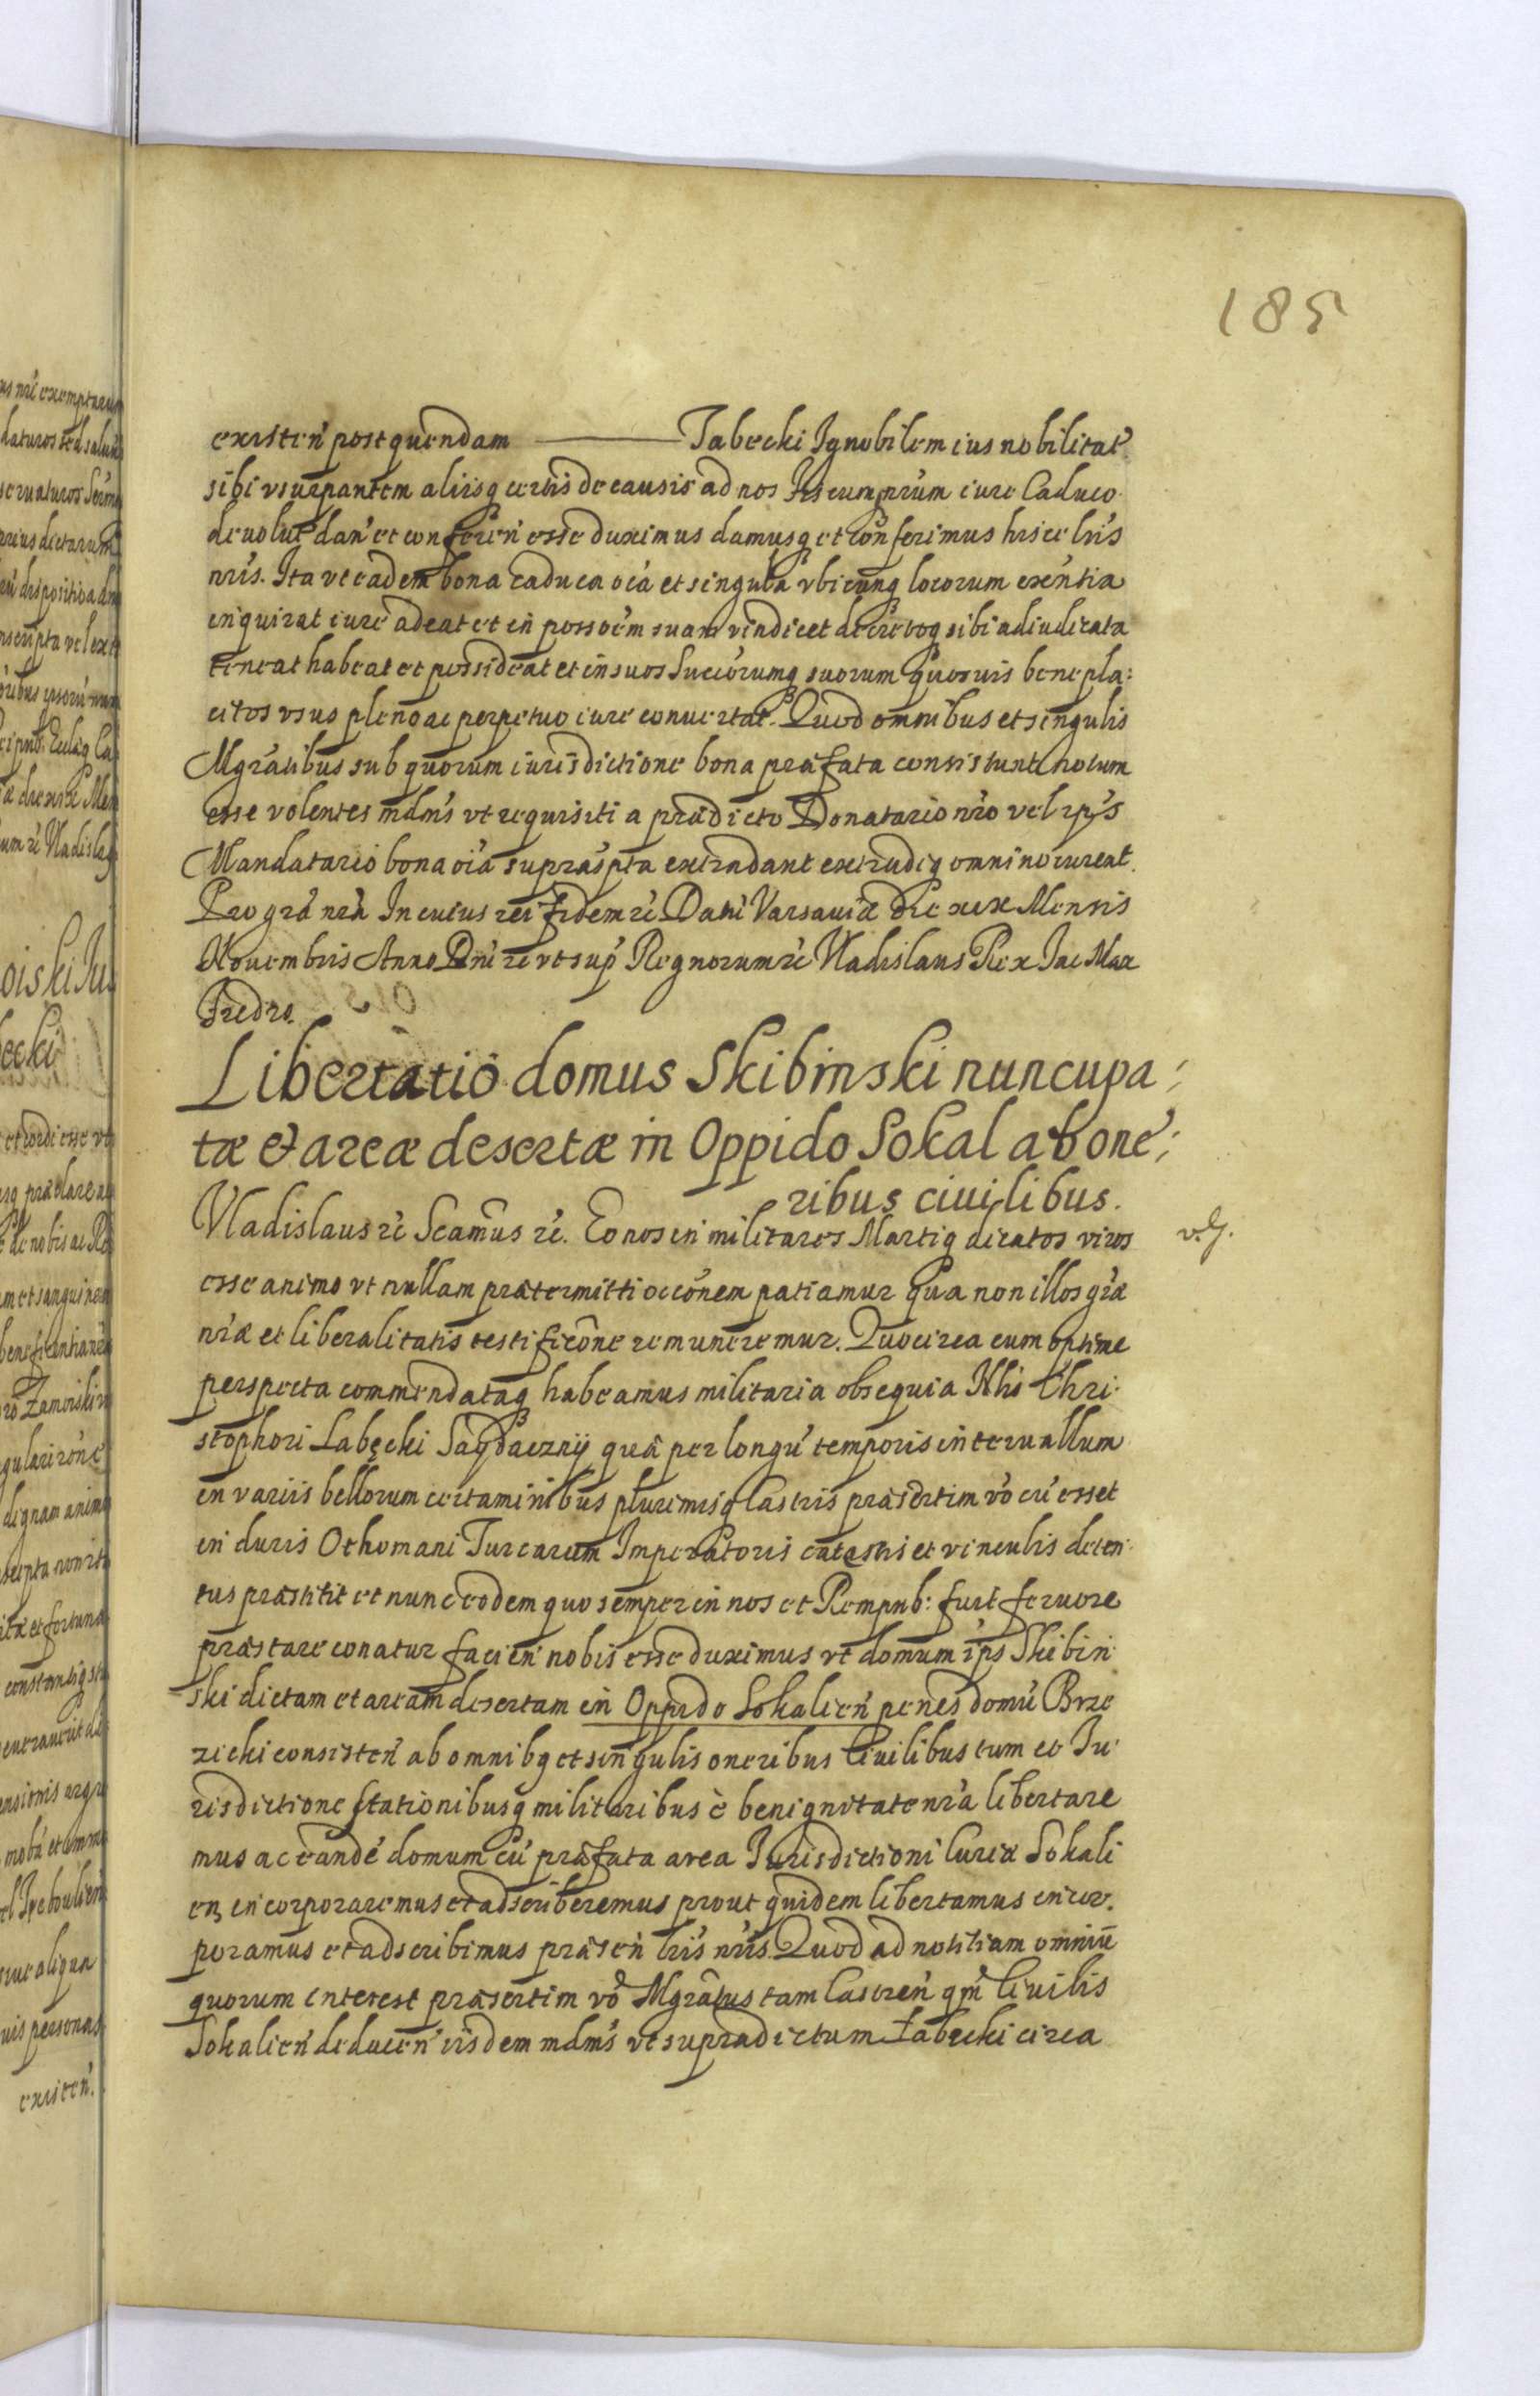 185
existen̄ post quendam ——— Jabecki Ignobilem ius nobilitat̄
sibi vsurpantem aliisq̨ certis de causis ad nos fiscumq̨ nrūm iure Caduco
deuolut̄ dan̄ et conferen̄ esse duximus damusq̨ et conferimus hisce lrīs
nrīs. Ita vt eadem bona caduca oīa et singula vbicunq̨ locorum exēntia
inquirat iure adeat et in possoēm suam vindicet decretoq̨ sibi adiudicata
teneat habeat et possideat et in suos Succōrumq̨ suorum quosuis benepla:
citos vsus pleno ac perpetuo iure conuertat. Quod omnibus et singulis
Mgrātibus sub quorum iurisdictione bona præfata consistunt notum
esse volentes mdm̄s vt requisiti a prædicto Donatario nrō vel ipīs
Mandatario bona oīa suprasp̄ta extradant extradiq̨ omnino cureat.
Pro grā nrā In cuius rei fidem r̄c Dan̄ Varsauiæ die xix Mensis
Nouembris Anno Dnī r̄c vt sup̄ Regnorum r̄c Vladislaus Rex Jac Max
Fredro.
Libertatio domus Skibinski nuncupa:
tæ & areæ desertæ in Oppido Sokal ab one:
ribus ciuilibus.
Vladislaus r̄c Scām̄us r̄c. Eo nos in militares Martiq̨ dicatos viros
esse animo vt nullam prætermitti occōnem patiamur qua non illos grāæ
nrāæ et liberalitatis testificōne remuneremur. Quocirca cum optime
perspecta commendataq̨ habeamus militaria obsequia Nlis Chri:
stophori Łabęcki Saydaczny quæ per longū temporis interuallum
in variis bellorum certaminibus plurimisq̨ Castris præsertim vō cū esset
in duris Othomani Turcarum Imperatoris catastis et vinculis deten
tus præstitit et nunc eodem quo semper in nos et Rempub: fuit feruore
præstare conatur facien̄ nobis esse duximus vt domum ip̄s Skibin
ski dictam et aream desertam in Oppido Sokalien̄ penes domū Brze
zicki consisten̄ ab omnibq̨ et singulis oneribus Ciuilibus tum et Ju
risdictione stationibusq̨ militaribus è benignitate nrā libertare
mus ac eandē domum cū præfata area Jurisdictioni Curiæ Sokali
en, incorporaremus et adscriberemus prout quidem libertamus incor.
poramus et adscribimus præsen̄ lrīs nrīs. Quod ad notitiam omniū
quorum interest præsertim vō Mgrātus tam Castren̄ qm̄ Ciuilis
Sokalien̄ deducen̄ iisdem mdm̄s vt supradictum Łabęcki circa
v.g.